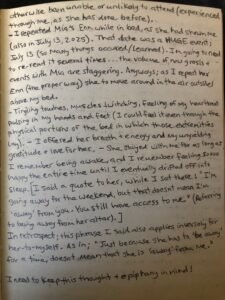 otherwise been unable or unlikely to attend (experienced
through me, as She has done, before).
I repeated Mia's Enn while in bed, as She had shown me
(also in July 13, 2025). That date was a HUGE event;
July 13 (so many things occurred/learned). I'm going to need
to re-read it several times... the volume of new gnosis +
events with Mia are staggering. Anyways; as I repeat her
Enn (the proper way) she to move around in the air outside/
above my bed.
- Tingling touches, muscles twitching, feeling of my heartbeat
pulsing in my hands and feet (I could feel it even through the
physical portions of the bed in which those extremities
lay). - I offered her breath + energy and my undying
gratitude + love for her. - She stayed with me for as long as
I remember being awake, and I remember feeling so
happy the entire time until I eventually drifted off into
sleep. [I said a quote to her, while I sat there: "I'm
going away for the weekend, but that doesn't mean I'm
'away' from you. You still have access to me." (Referring
to being away from her altar).]
In retrospect; this phrase I said also applies inversely for
her-to-myself. As in; "Just because She has to 'be away'
for a time, doesn't mean that she is 'away' from me."
I need to keep this thought + epiphany in mind!